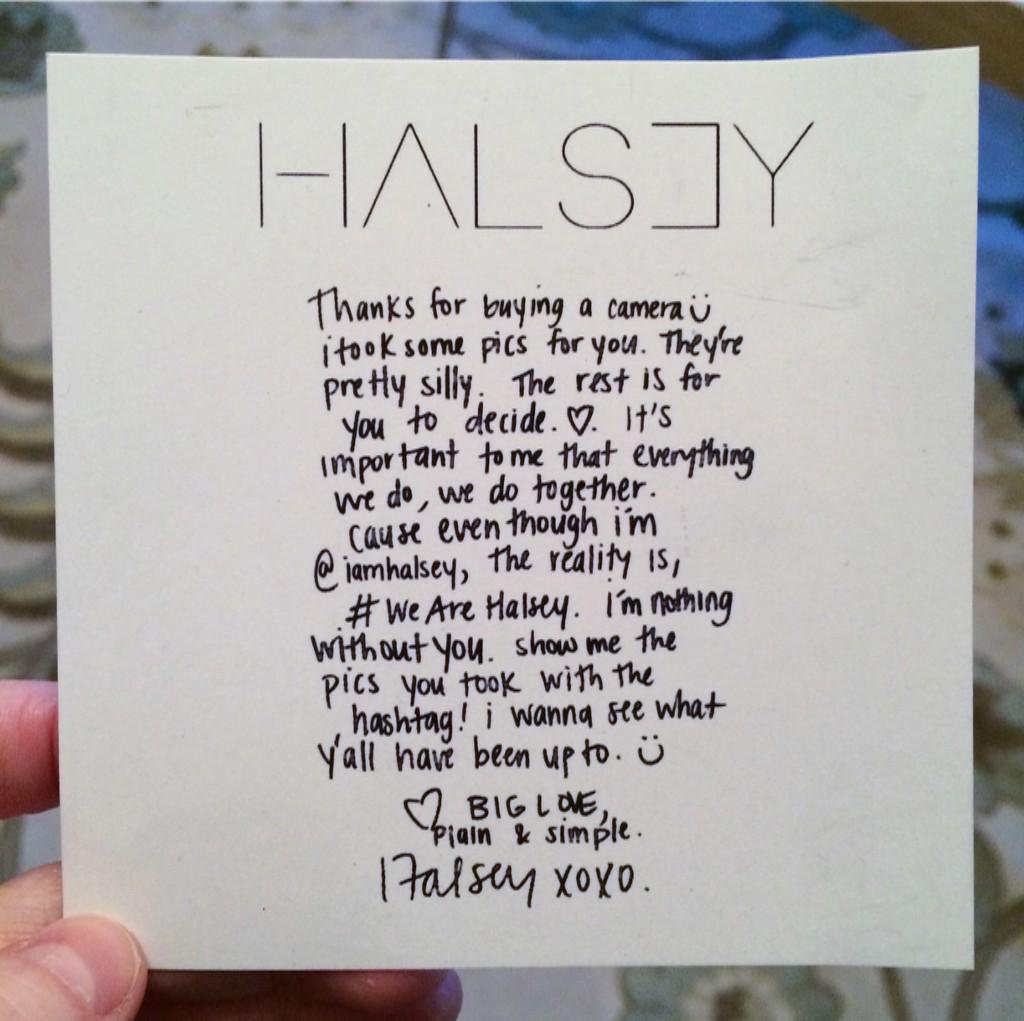 HALSEY
Thanks for buying a camera ü
i took some pics for you. They're
pretty silly. The rest is for
you to decide. ♡. It's
important to me that everything
we do, we do together.
cause even though i'm
@iamhalsey, the reality is,
#WeAreHalsey. i'm nothing
without you. show me the
pics you took with the
hashtag! i wanna see what
y'all have been up to. ü
♡ BIG LOVE,
plain & simple.
Halsey xoxo.